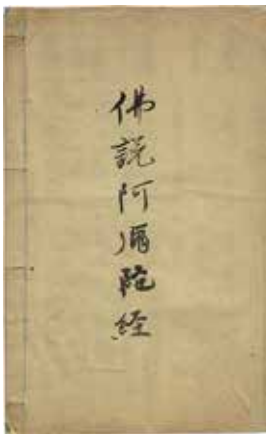 佛說阿彌陀経